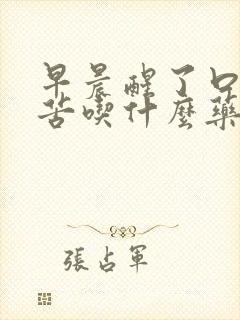 早晨醒了口
苦喫什麼藥
張占軍